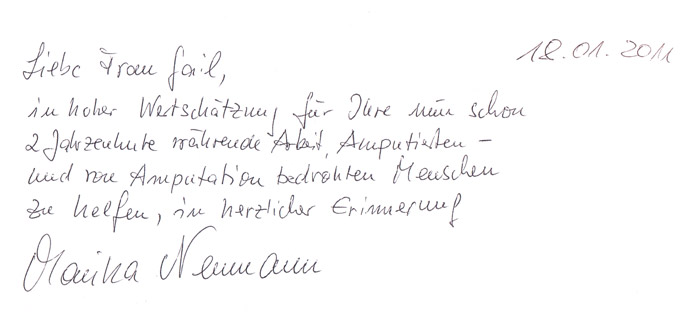 18.01.2011
Liebe Frau Gail,
in hoher Wertschätzung für Ihre nun schon
2 Jahrzehnte währende Arbeit, Amputierten –
und von Amputation bedrohten Menschen
zu helfen, in herzlicher Erinnerung
Monika Neumann